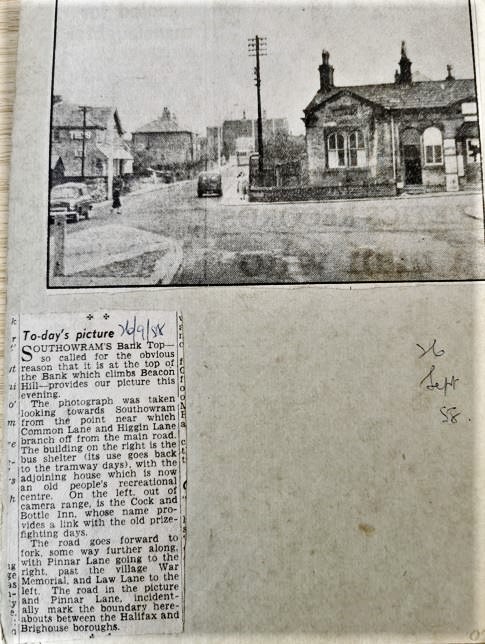 To-day's picture 26/9/58
SOUTHOWRAM'S Bank Top—
so called for the obvious
reason that it is at the top of
the Bank which climbs Beacon
Hill—provides our picture this
evening.
The photograph was taken
looking towards Southowram
from the point near which
Common Lane and Higgin Lane
branch off from the main road.
The building on the right is the
bus shelter (its use goes back
to the tramway days), with the
adjoining house which is now
an old people's recreational
centre. On the left, out of
camera range, is the Cock and
Bottle Inn, whose name pro-
vides a link with the old prize-
fighting days.
The road goes forward to
fork, some way further along,
with Pinnar Lane going to the
right, past the village War
Memorial, and Law Lane to the
left. The road in the picture
and Pinnar Lane, incident-
ally mark the boundary here-
abouts between the Halifax and
Brighouse boroughs.
26
Sept
58.